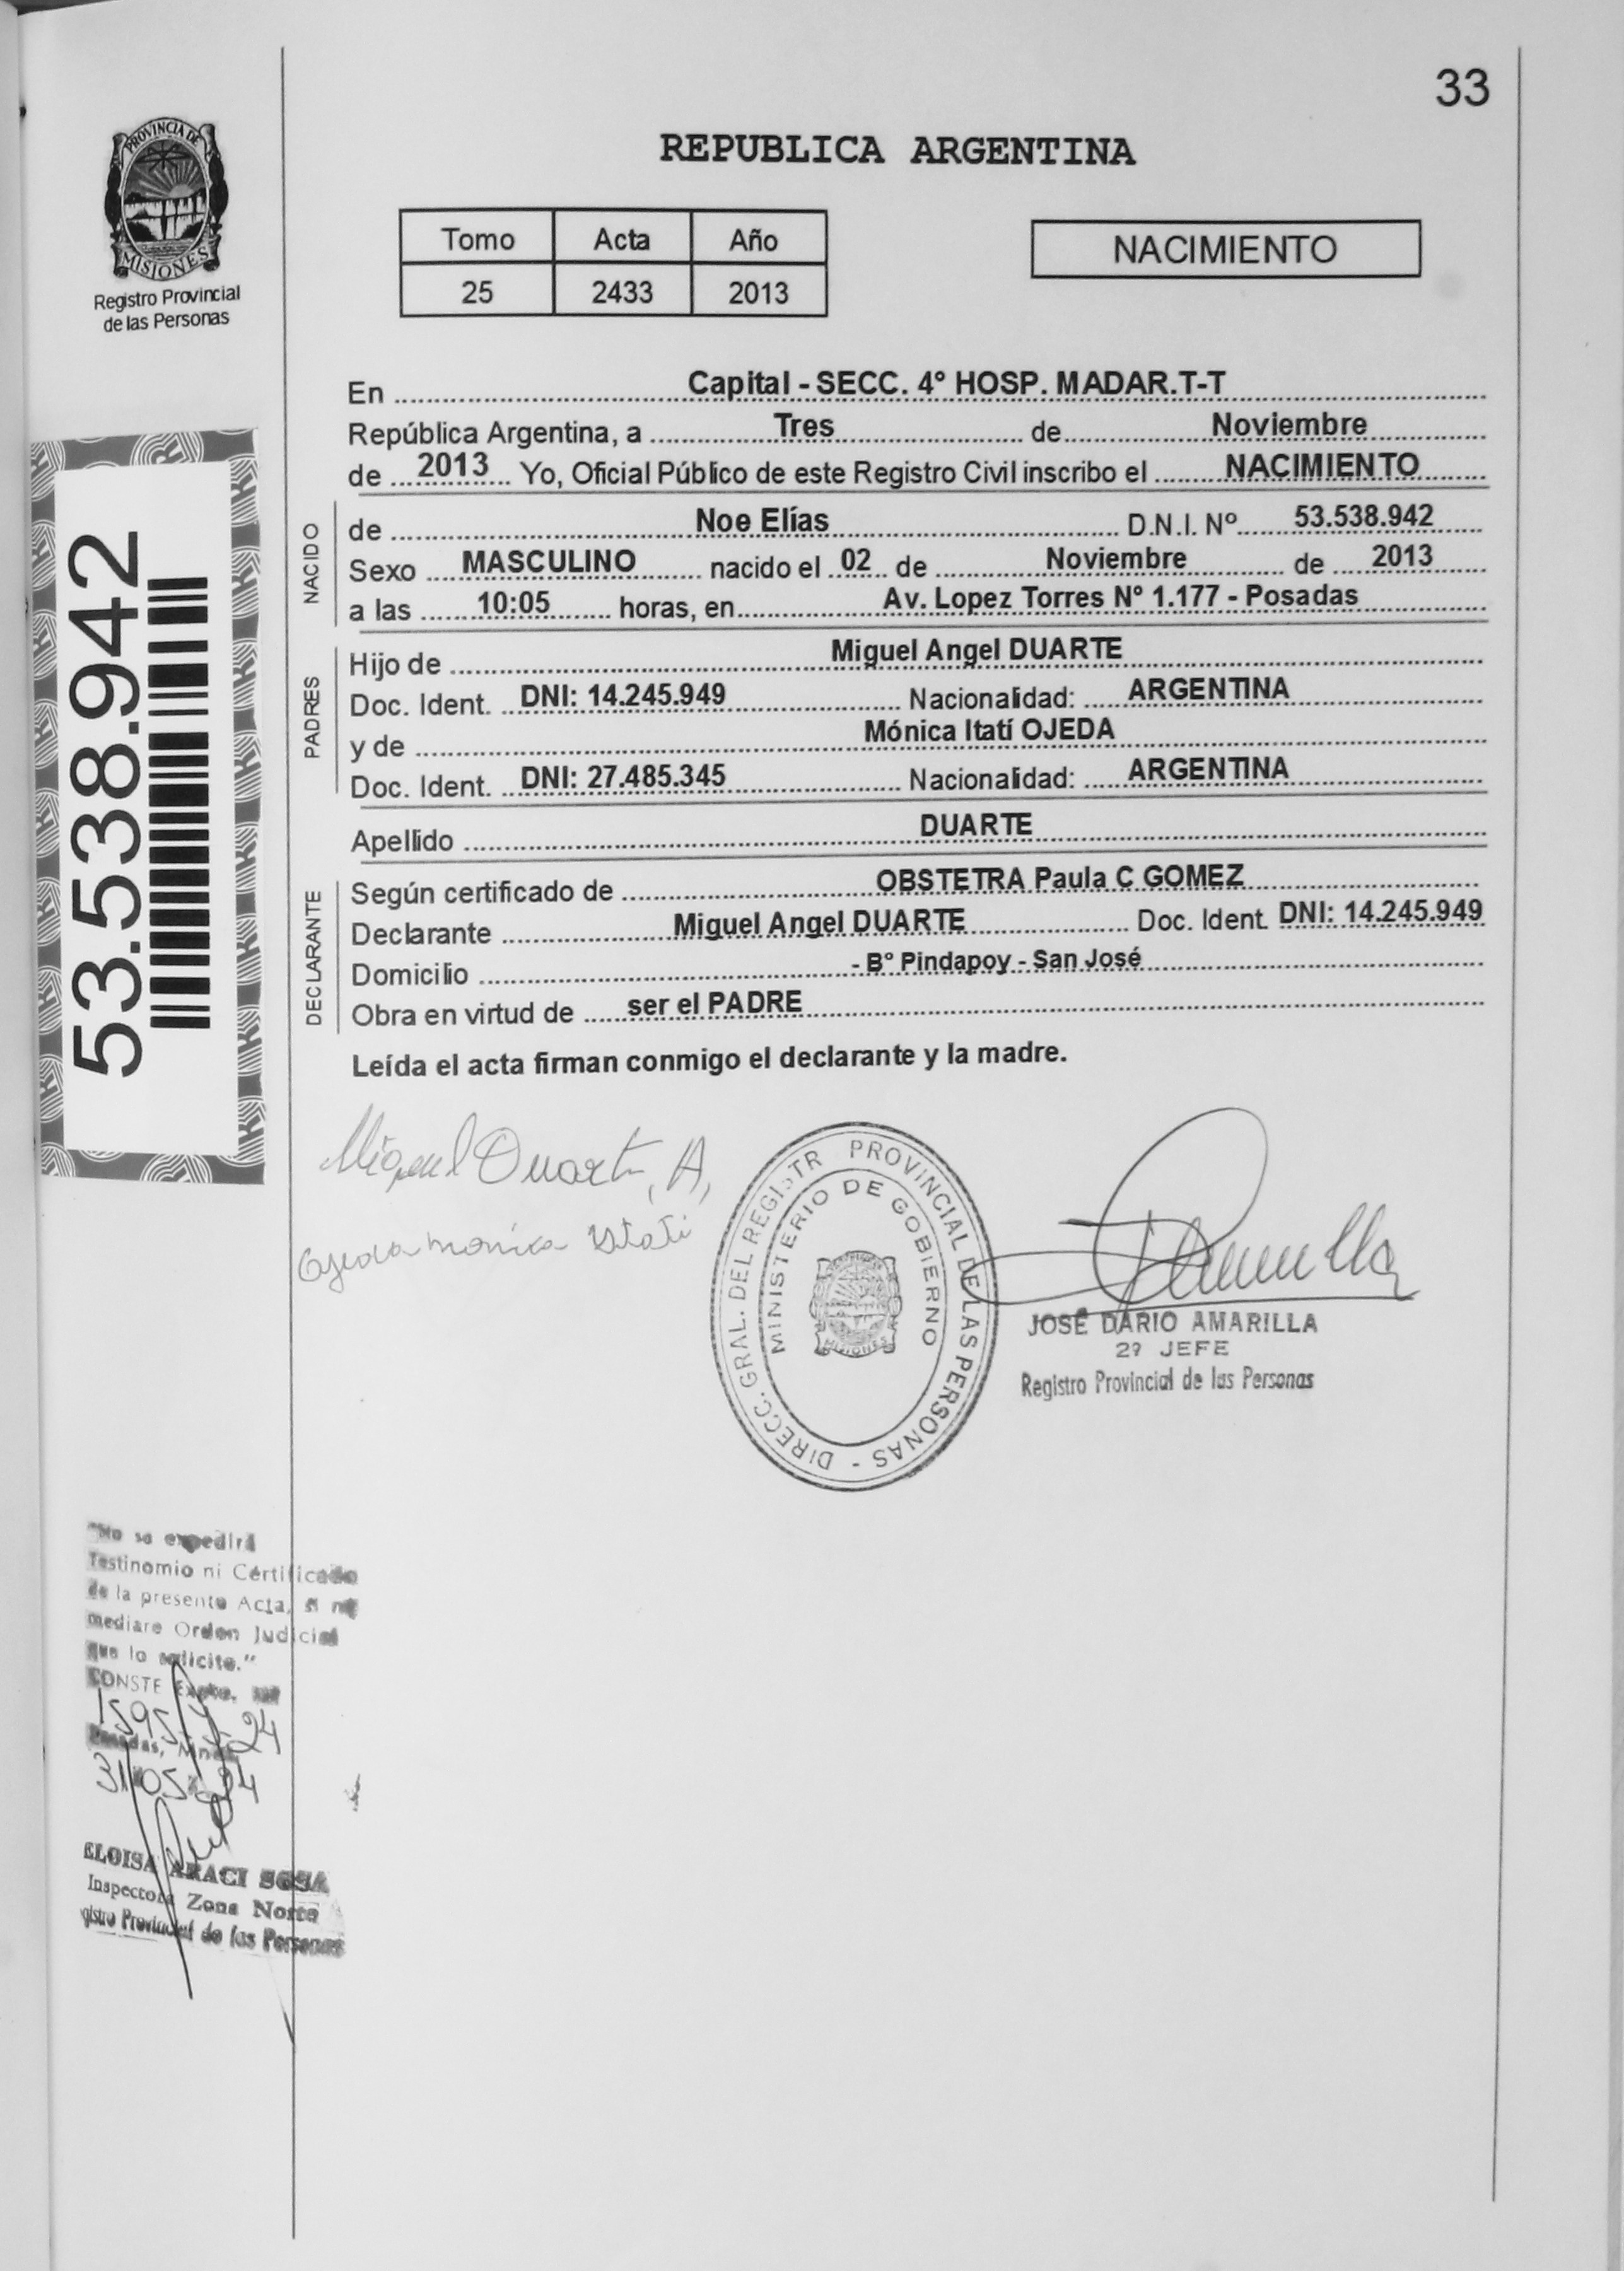 33
PROVINCIA DE
MISIONES
Registro Provincial
de las Personas
REPUBLICA ARGENTINA
Tomo Acta Año
25 2433 2013
NACIMIENTO
53.538.942
En Capital - SECC. 4° HOSP. MADAR.T-T
República Argentina, a Tres de Noviembre
de 2013 Yo, Oficial Público de este Registro Civil inscribo el NACIMIENTO
NACIDO
de Noe Elías D.N.I. Nº 53.538.942
Sexo MASCULINO nacido el 02 de Noviembre de 2013
a las 10:05 horas, en Av. Lopez Torres Nº 1.177 - Posadas
PADRES
Hijo de Miguel Angel DUARTE
Doc. Ident. DNI: 14.245.949 Nacionalidad: ARGENTINA
y de Mónica Itatí OJEDA
Doc. Ident. DNI: 27.485.345 Nacionalidad: ARGENTINA
Apellido DUARTE
DECLARANTE
Según certificado de OBSTETRA Paula C GOMEZ
Declarante Miguel Angel DUARTE Doc. Ident. DNI: 14.245.949
Domicilio - B° Pindapoy - San José
Obra en virtud de ser el PADRE
Leída el acta firman conmigo el declarante y la madre.
Miguel Duarte, A,
Ojeda monica Itati
DIRECC. GRAL. DEL REGISTR PROVINCIAL DE LAS PERSONAS -
MINISTERIO DE GOBIERNO
MISIONES
JOSÉ DARIO AMARILLA
2º JEFE
Registro Provincial de las Personas
"No se expedirá
Testinomio ni Certificado
de la presente Acta, si no
mediare Orden Judicial
que lo solicite."
CONSTE Expte.
1595 24
Posadas, Mnes.
31 05 24
ELOISA ARACI SOSA
Inspectora Zona Norte
gistro Provincial de las Personas